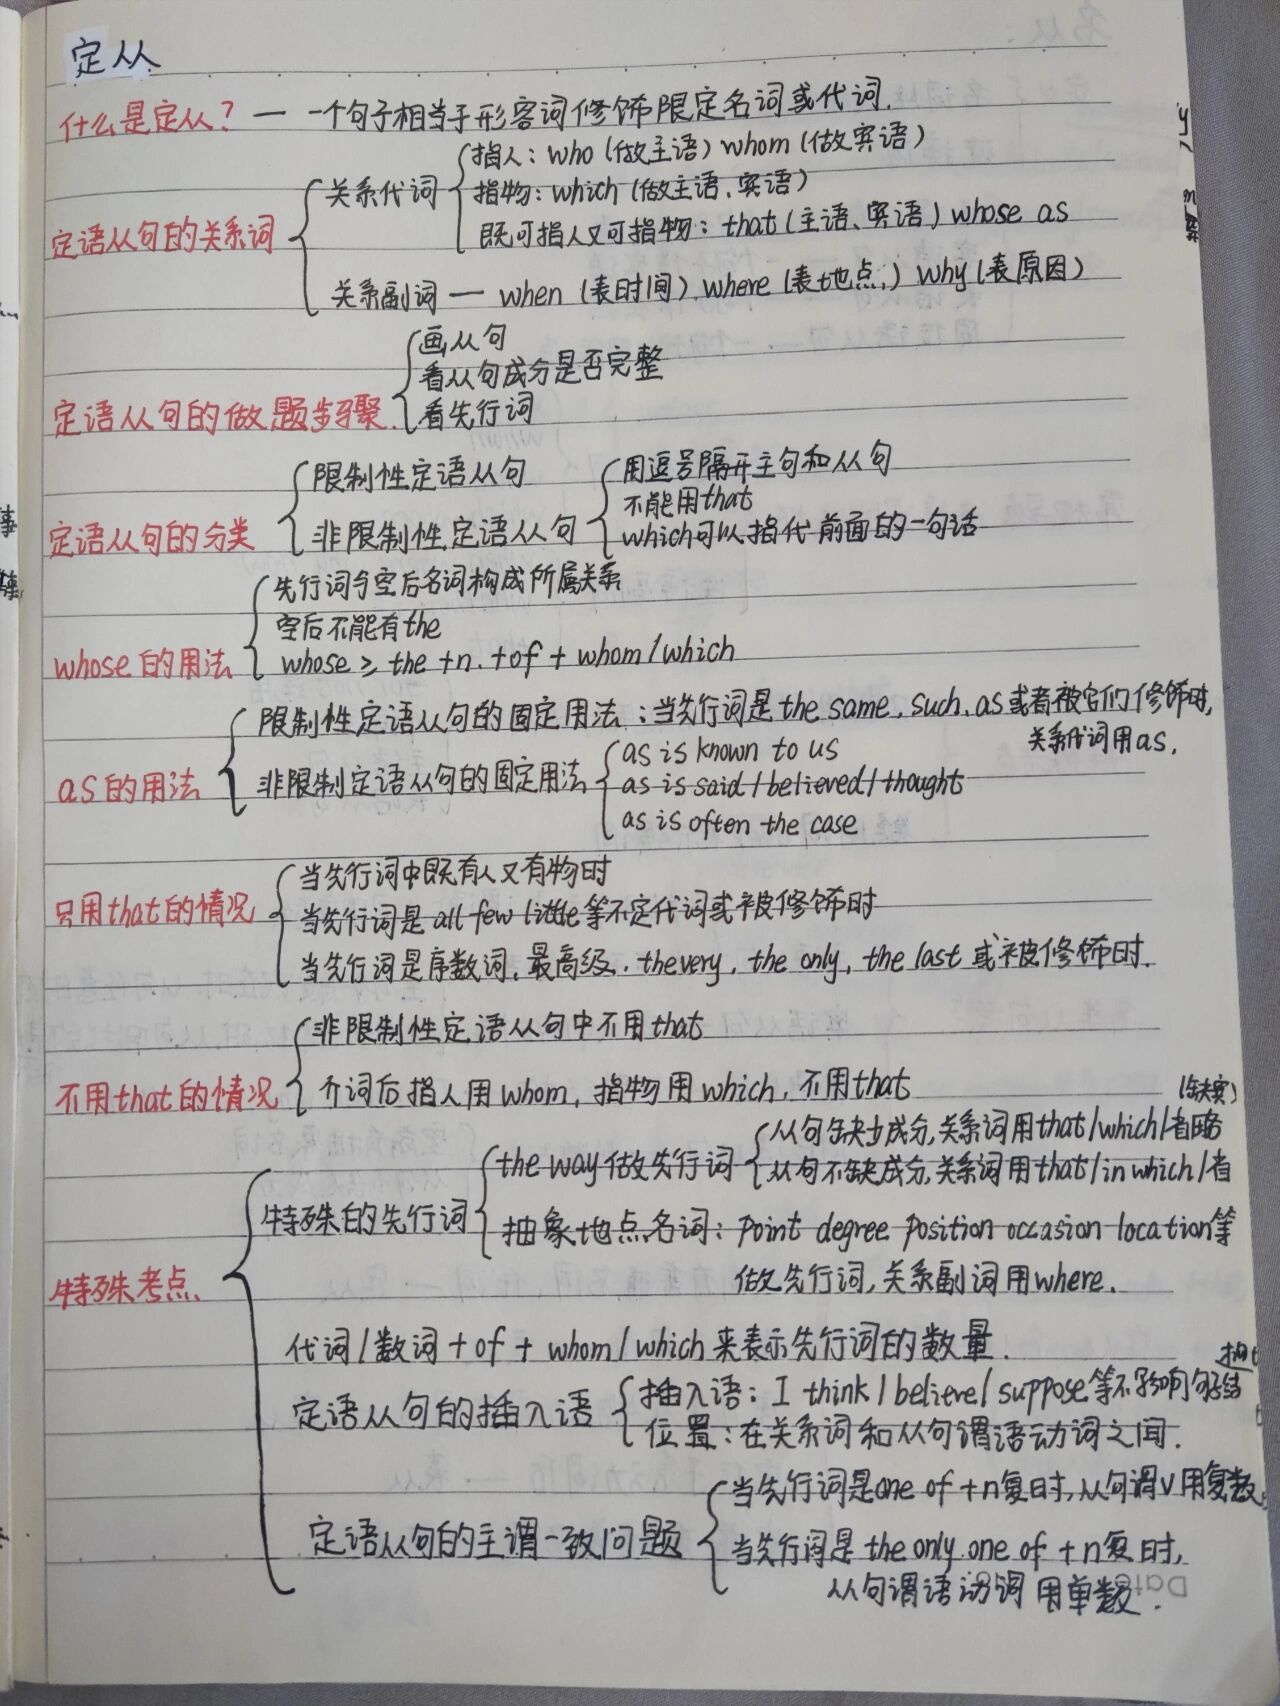 定从
什么是定从? — 一个句子相当于形容词修饰限定名词或代词.
定语从句的关系词
关系代词
指人: who (做主语) whom (做宾语)
指物: which (做主语、宾语)
既可指人又可指物: that (主语、宾语) whose as
关系副词 — when (表时间) where (表地点) why (表原因)
定语从句的做题步骤
画从句
看从句成分是否完整
看先行词
定语从句的分类
限制性定语从句
非限制性定语从句
用逗号隔开主句和从句
不能用that
which可以指代前面的一句话
whose的用法
先行词与空后名词构成所属关系
空后不能有the
whose ≥ the +n. +of + whom/which
as的用法
限制性定语从句的固定用法:当先行词是the same, such, as或者被它们修饰时,
关系代词用as.
非限制定语从句的固定用法
as is known to us
as is said/believed/thought
as is often the case
只用that的情况
当先行词中既有人又有物时
当先行词是all few little等不定代词或被修饰时
当先行词是序数词、最高级、the very, the only, the last 或被修饰时.
不用that的情况
非限制性定语从句中不用that
介词后指人用whom, 指物用which, 不用that
特殊考点
特殊的先行词
the way做先行词
(缺宾)
从句缺少成分,关系词用that/which/省略
从句不缺成分,关系词用that/in which/省
抽象地点名词: point degree position occasion location等
做先行词,关系副词用where.
代词/数词+of+whom/which来表示先行词的数量.
定语从句的插入语
插入语: I think/believe/suppose等不影响句子结
构
位置:在关系词和从句谓语动词之间.
定语从句的主谓一致问题
当先行词是one of +n复时,从句谓V用复数
当先行词是the only one of +n复时,
从句谓语动词用单数.
Date